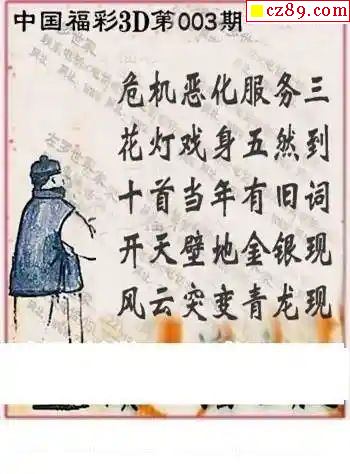 cz89.com
中国福彩3D第003期
危机恶化服务三
花灯戏身五然到
十首当年有旧词
开天壁地金银现
风云突变青龙现